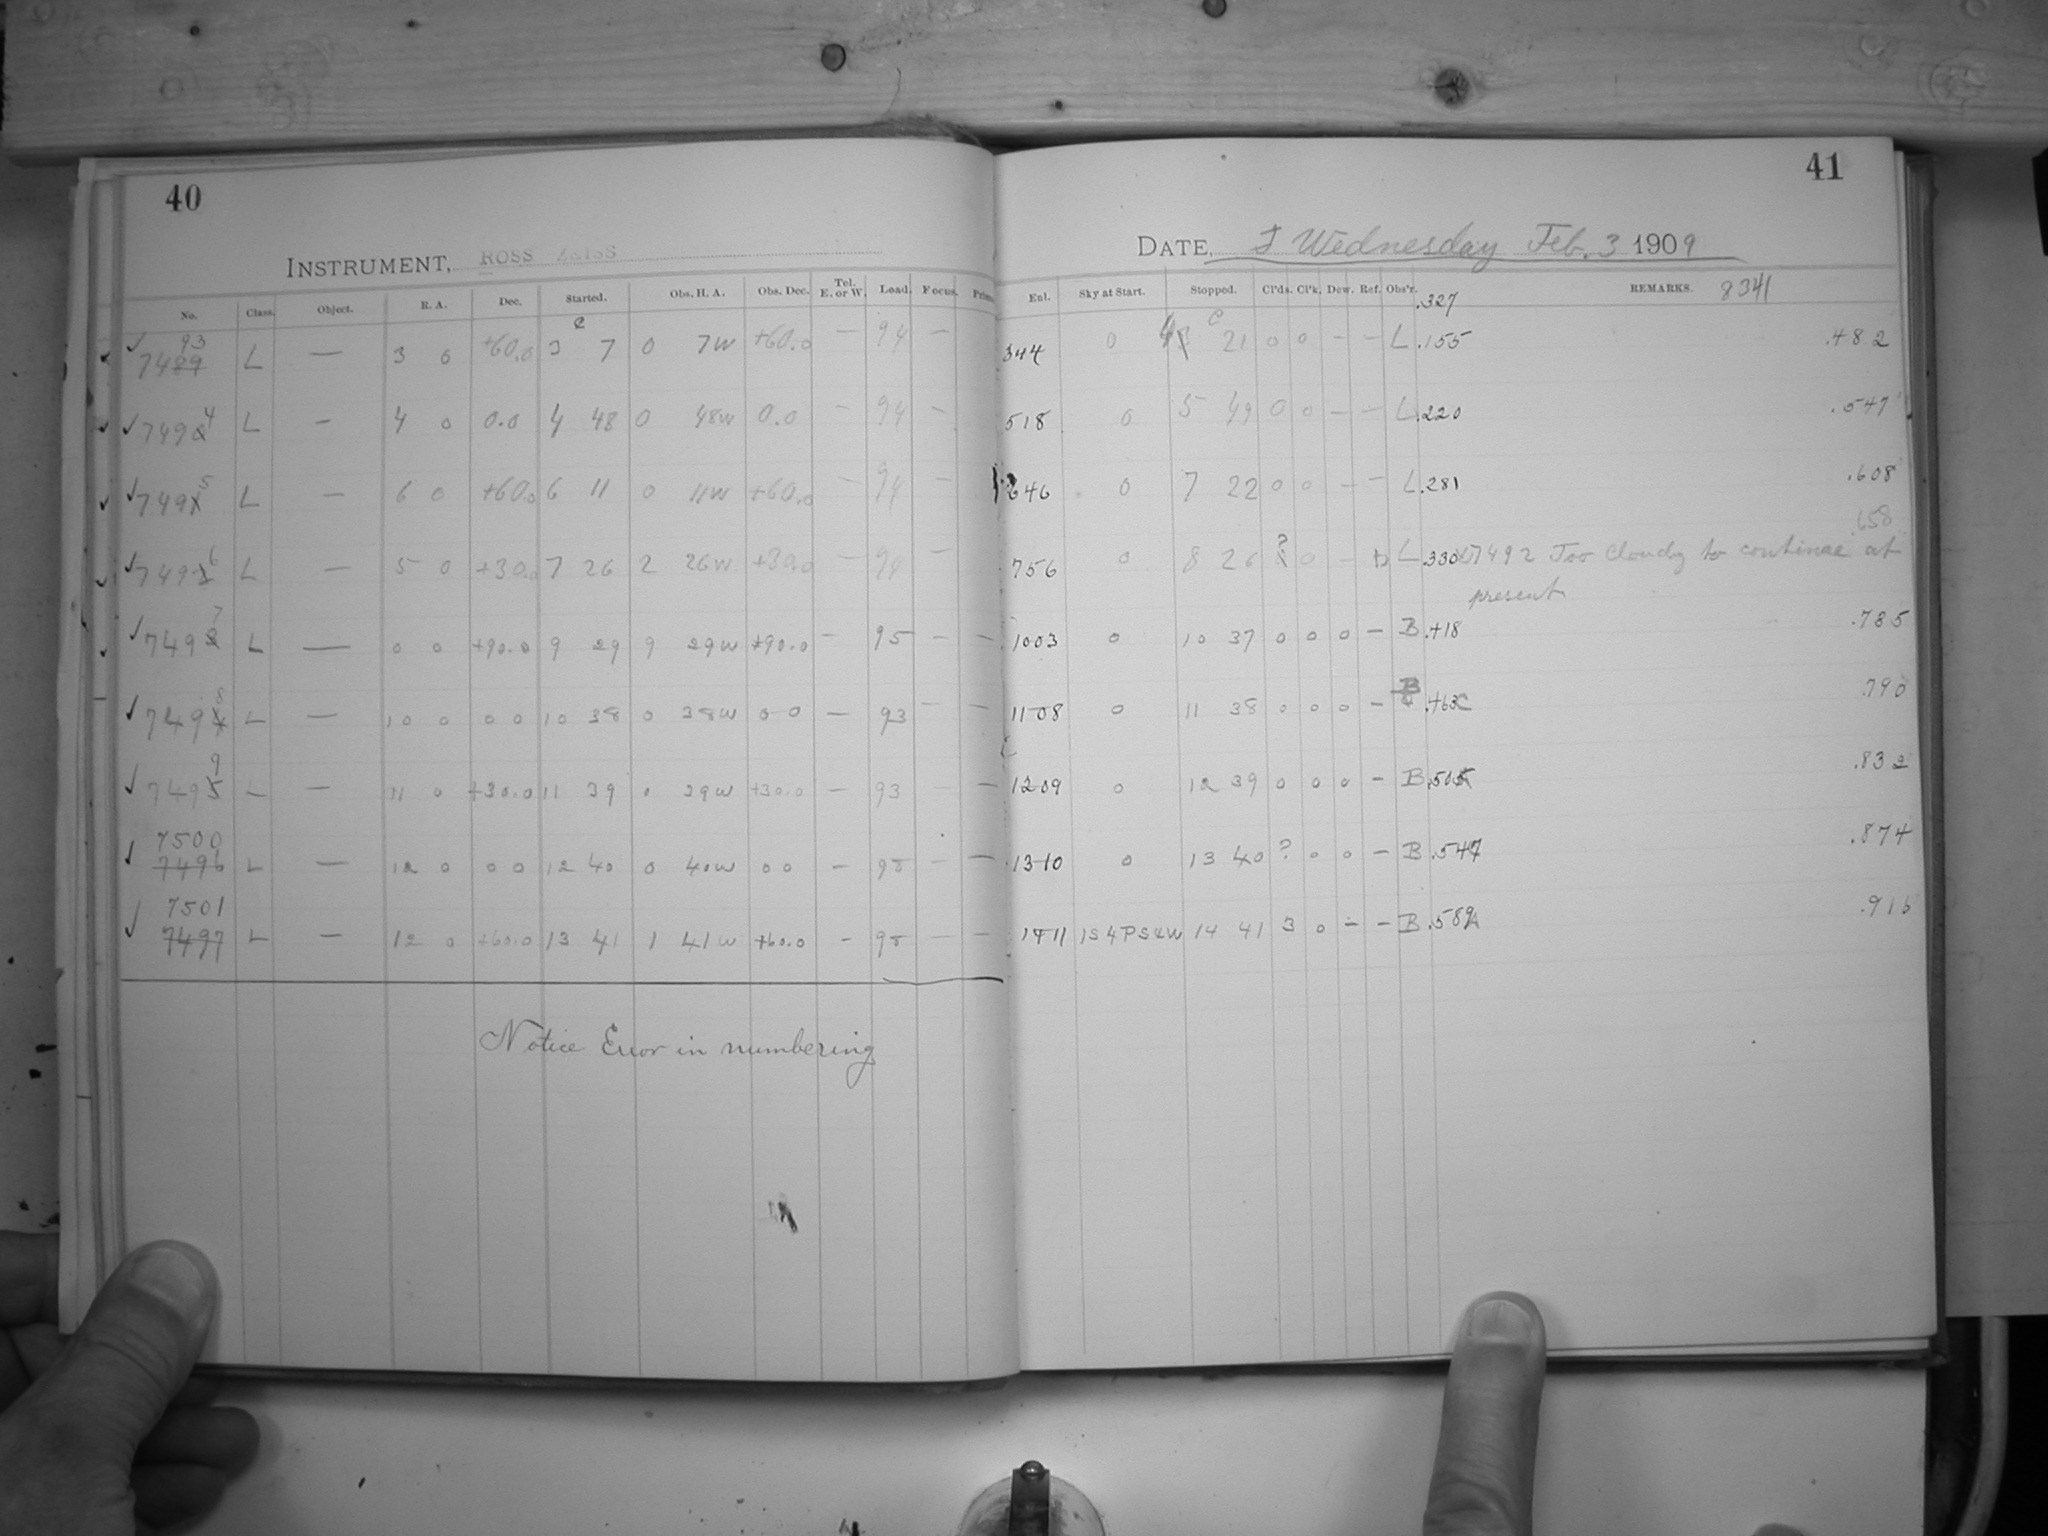 40
INSTRUMENT, ROSS ZEISS
No. Class. Object. R. A. Dec. Started. Obs. H. A. Obs. Dec. Tel. E. or W. Load. Focus.
93
7489 L — 3 0 +60.0 3 7 0 7W +60.0 — 94 —
7490 4 L — 4 0 0.0 4 48 0 48W 0.0 — 94 —
7491 5 L — 6 0 +60.0 6 11 0 11W +60.0 — 94 —
7492 6 L — 5 0 +30.0 7 26 2 26W +30.0 — 94 —
7493 7 L — 0 0 +90.0 9 29 9 29W +90.0 — 95 — —
7494 8 L — 10 0 0 0 10 38 0 38W 0 0 — 93 — —
7495 9 L — 11 0 +30.0 11 39 0 39W +30.0 — 93 — —
7500
7496 L — 12 0 0 0 12 40 0 40W 0 0 — 95 — —
7501
7497 L — 12 0 +60.0 13 41 1 41W +60.0 — 95 — —
Notice Error in numbering
41
DATE, Wednesday Feb. 3 1909
Enl. Sky at Start. Stopped. Cl'ds. Cl'k. Dew. Ref. Obs'r. REMARKS. 8341
.327
344 0 4 21 0 0 – – L .155 .482
518 0 5 49 0 0 – – L .220 .547
646 0 7 22 0 0 – – L .281 .608
658
756 0 8 26 ? 0 – D L .330 7492 Too Cloudy to continue at
present
1003 0 10 37 0 0 0 – B .418 .785
1108 0 11 38 0 0 0 – B .463 .790
1209 0 12 39 0 0 0 – B .505 .832
1310 0 13 40 ? 0 0 – B .547 .874
1411 1S4PS4W 14 41 3 0 – – B .589 .916